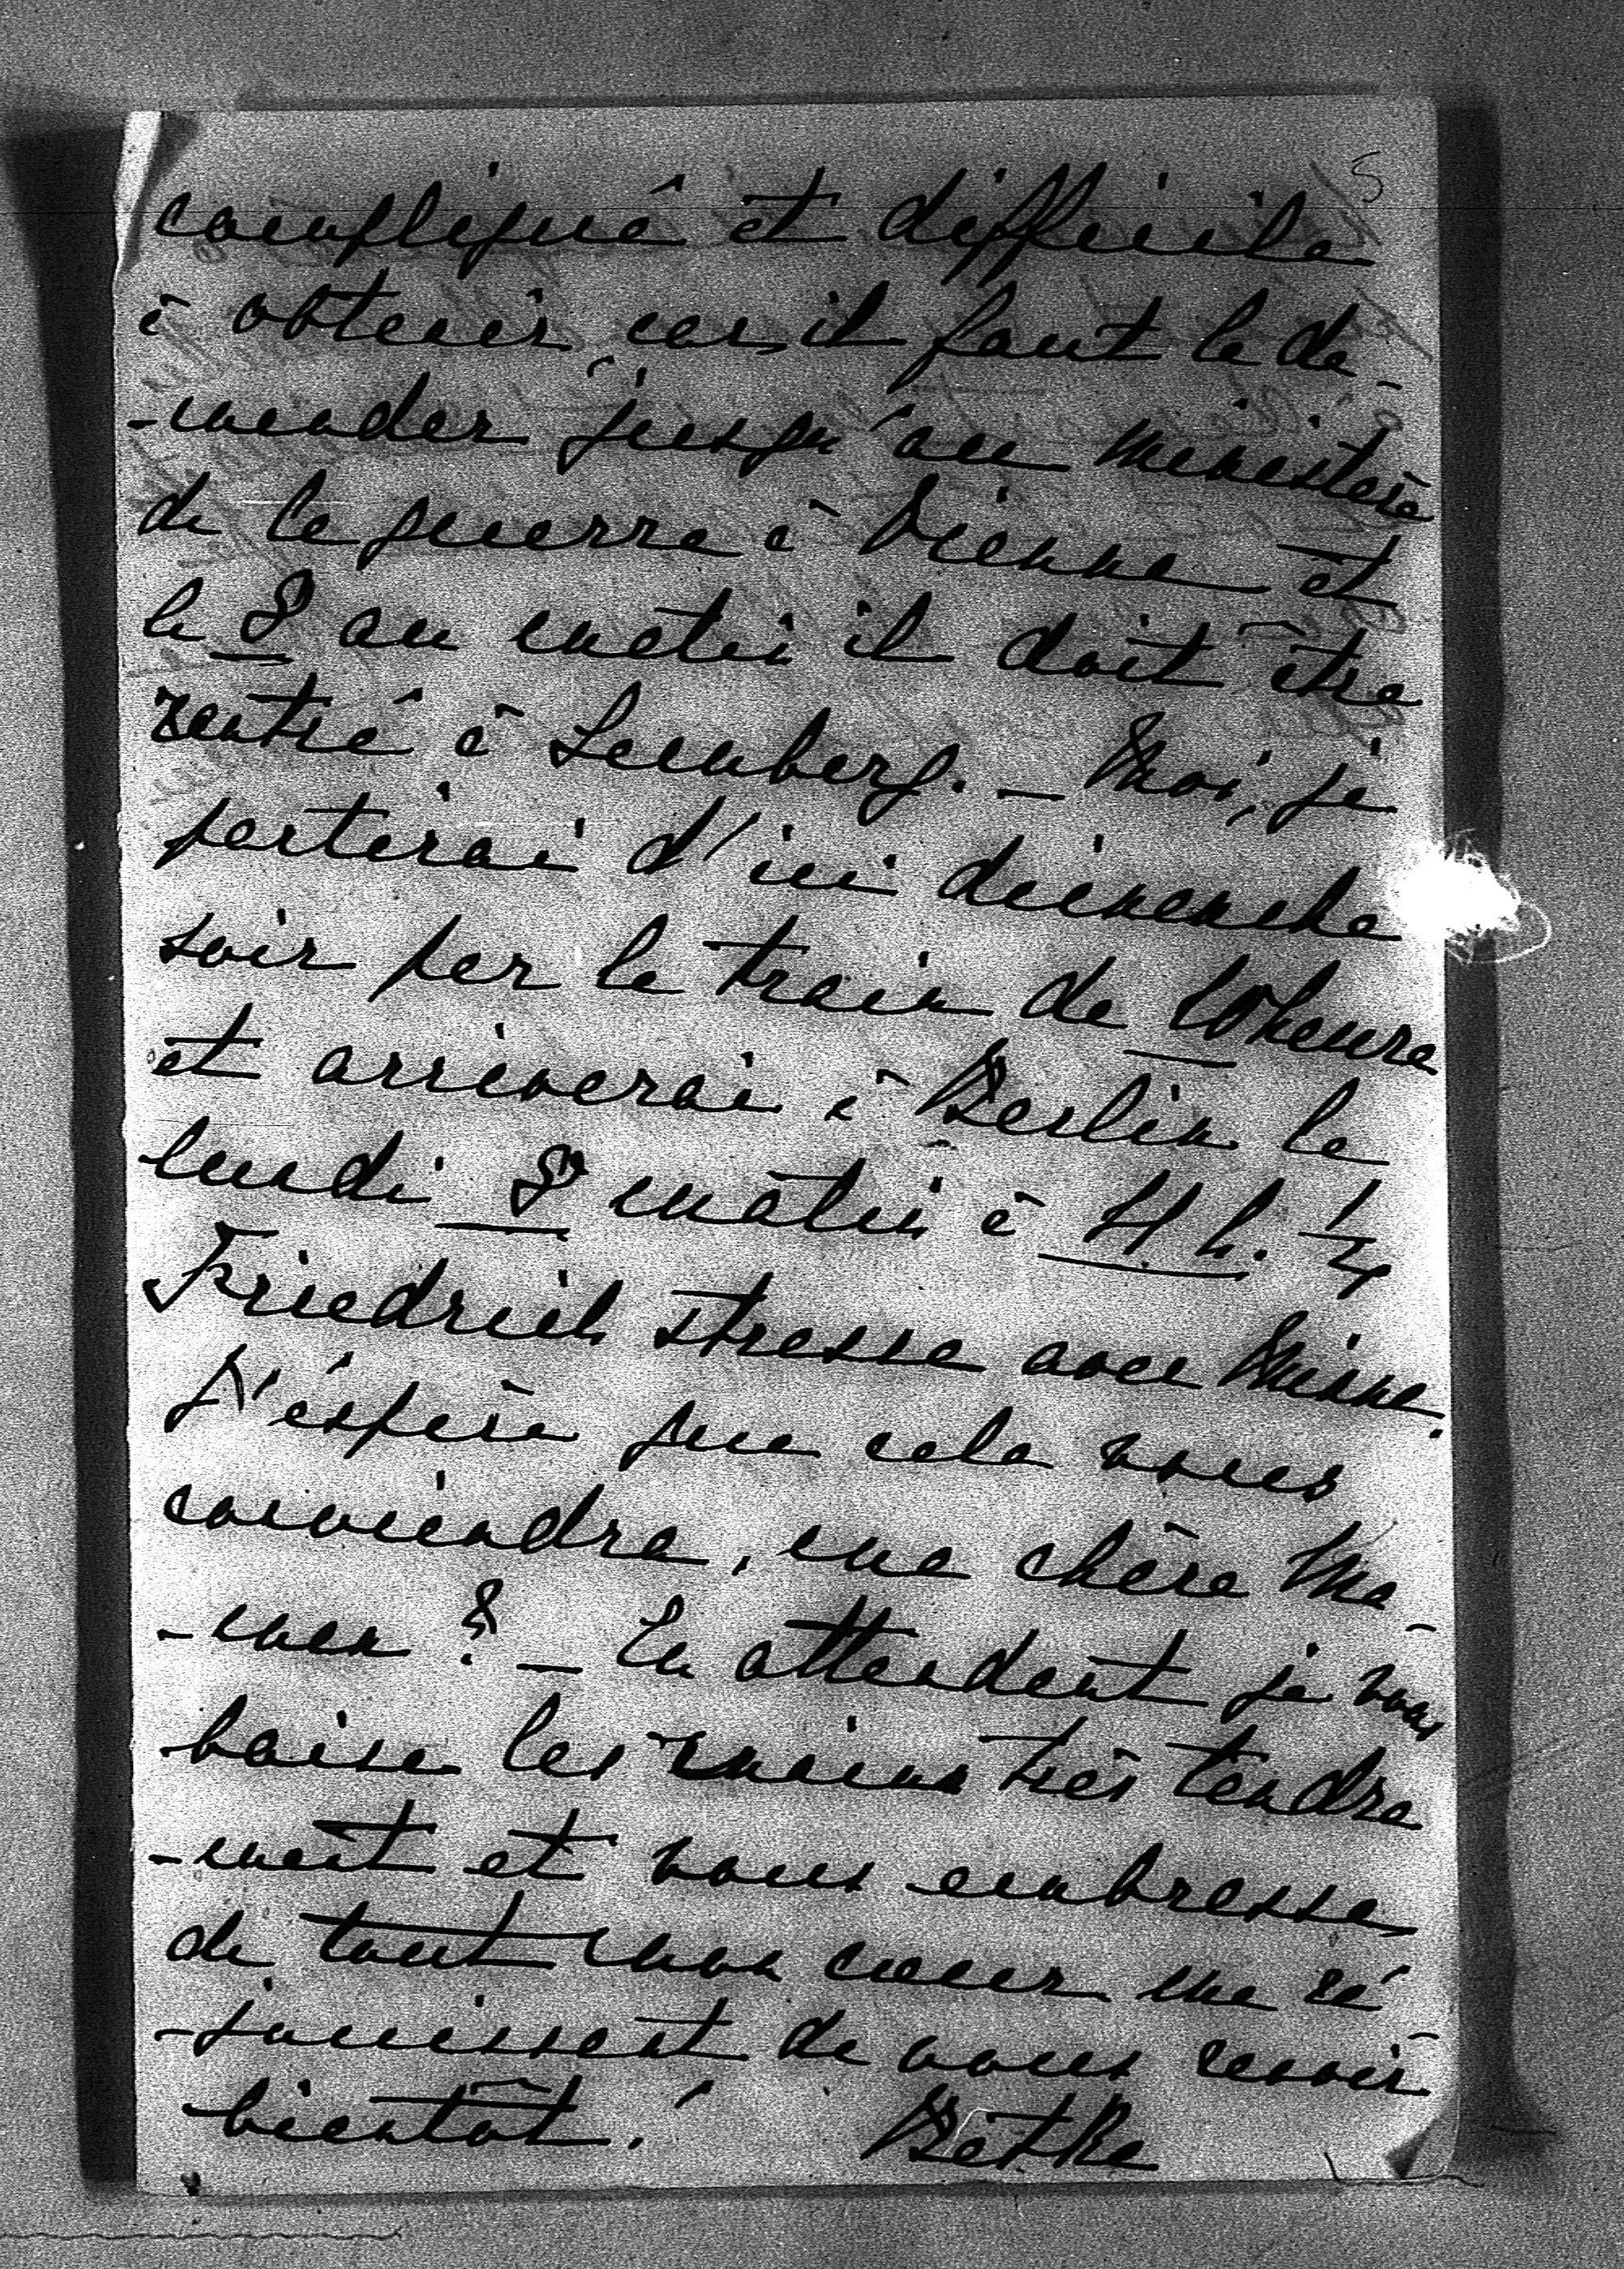 5
compliqué et difficile
à obtenir, car il faut le de-
-mander jusqu'au ministère
de la guerre à Vienne et
le 8 au matin il doit être
rentré à Lemberg. _ Moi, je
partirai d'ici dimanche
soir par le train de 10 heure
et arriverai à Berlin le
lundi 8 matin à 4 h. 1/4
Friedrich strasse avec
J'éspère que cela vous
conviendra, ma chère Ma-
-man ? _ En attendant je vous
baise les mains très tendre
-ment et vous embrasse
de tout mon cœur me ré
-jouissant de vous revoir
bientôt !